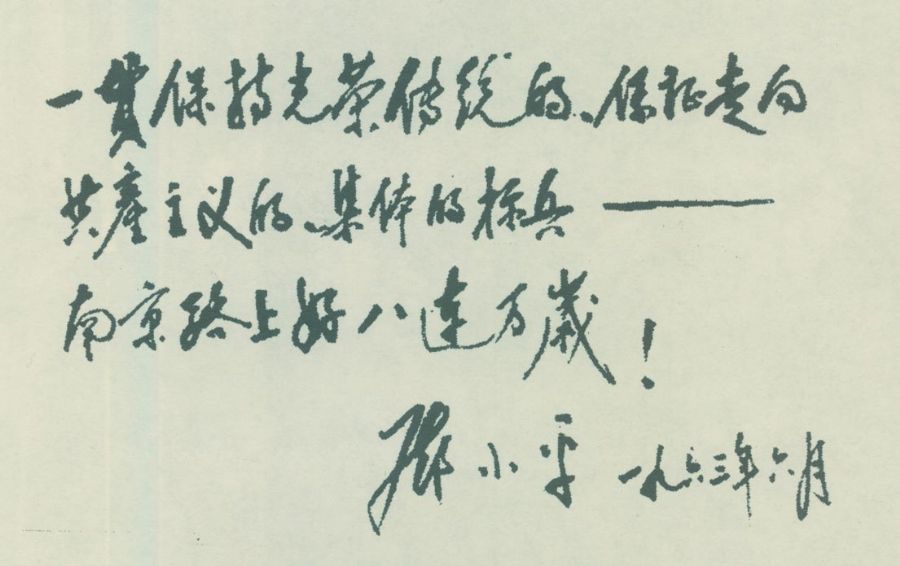 一贯保持光荣传统的、保证走向
共產主义的、集体的标兵——
南京路上好八连万歲！
邓小平 一九六三年六月